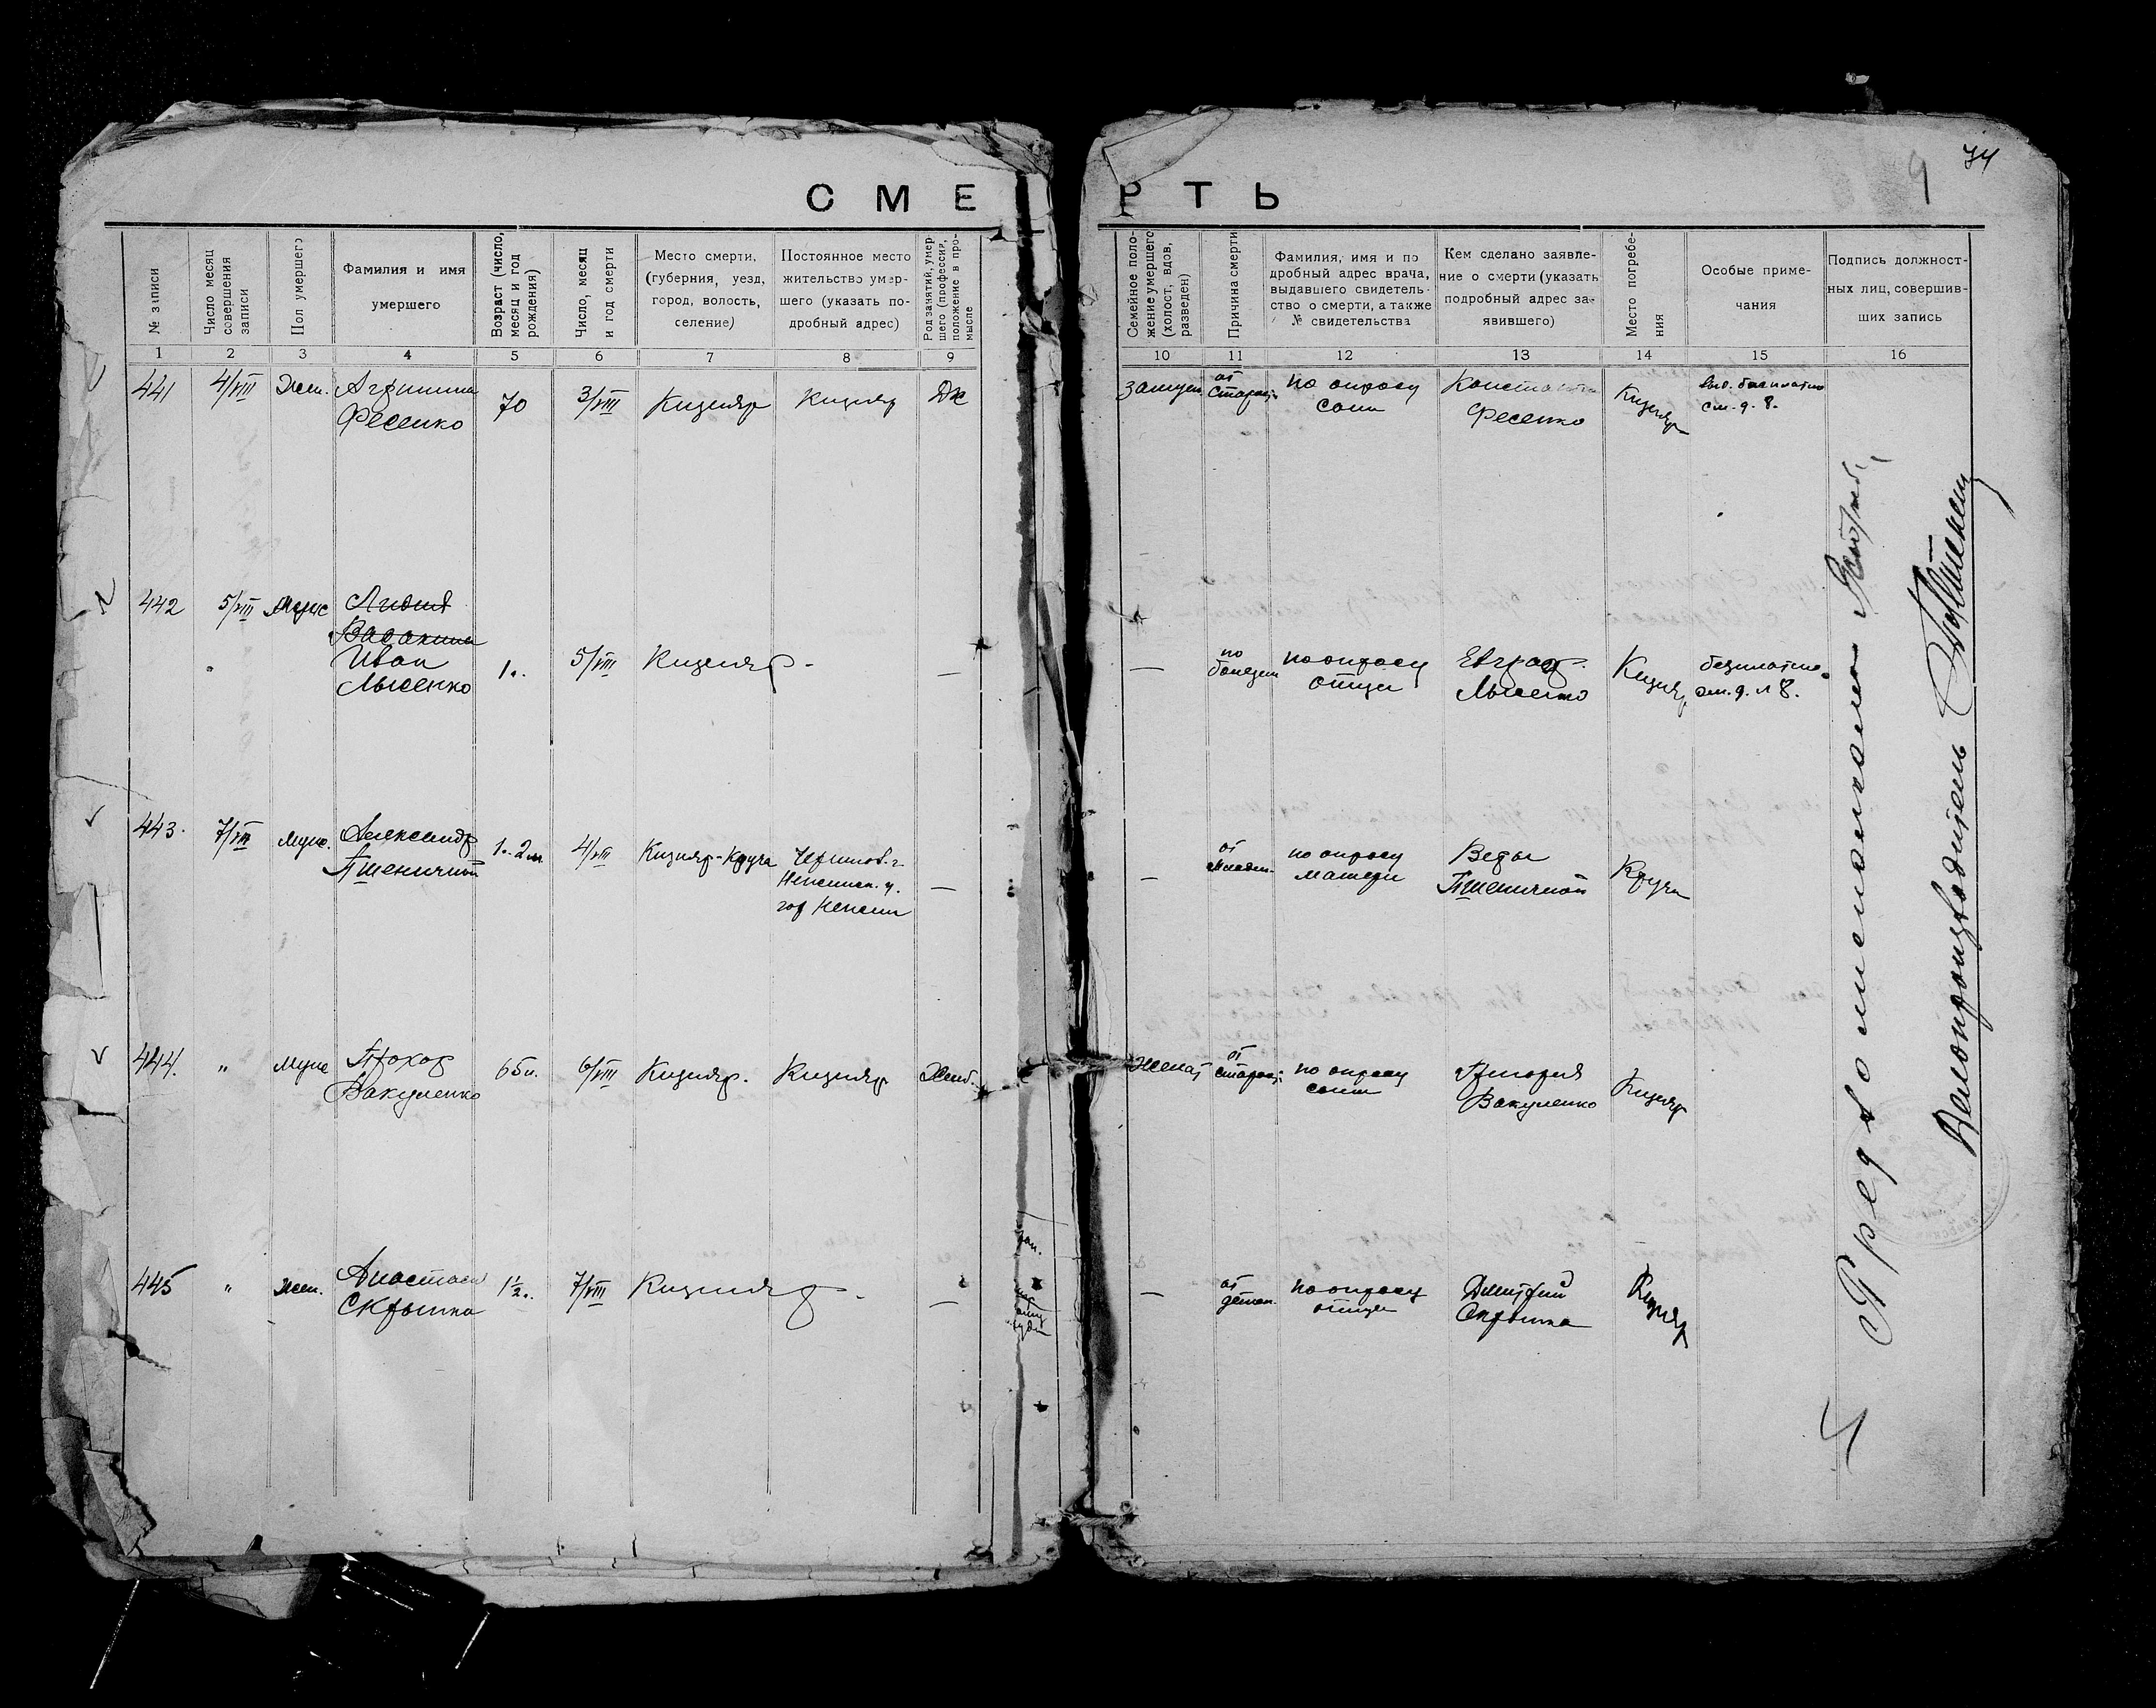 74
9
СМЕРТЬ
№ записи
Число месяц
совершения
записи
Пол умершего
Фамилия и имя
умершего
Возраст (число,
месяц и год
рождения)
Число, месяц
и год смерти
Место смерти,
(губерния, уезд,
город, волость,
селение)
Постоянное место
жительство умер-
шего (указать по-
дробный адрес)
Род занятий, умер-
шего (профессия,
положение в про-
мысле
Семейное поло-
жение умершего
(холост, вдов,
разведен)
Причина смерти
Фамилия, имя и по
дробный адрес врача,
выдавшего свидетель-
ство о смерти, а также
№ свидетельства
Кем сделано заявле-
ние о смерти (указать
подробный адрес за-
явившего)
Место погребе-
ния
Особые приме-
чания
Подпись должност-
ных лиц, совершив-
ших запись
1 2 3 4 5 6 7 8 9 10 11 12 13 14 15 16
441 4/VIII Жен. Агрипина
Фесенко
70 3/VIII Кизияр Кизияр Дх
замуж. от
старост.
по опросу
сына
Константин
Фесенко
Кизияр
бесплатно
см. д. 8.
442 5/VIII Муж
Лидия
Иван
Лысенко
1. 5/VIII Кизияр - —
— по
болезни
по опросу
отца
Евграф
Лысенко
Кизияр
бесплатно
см. д. л 8.
443. 7/VIII Муж. Александр
Пшеничный
1. 2 м 4/VIII Кизияр-Круча
Чернигов. г.
гор Нежин
—
— от
младен.
по опросу
матери
Веры
Пшеничной
Круча
444. " Муж Прохор
Вакуленко
65 л. 6/VIII Кизияр. Кизияр Хлеб.
Женат от
старост.
по опросу
сына
Григория
Вакуленко
Кизияр
445 " Жен. Анастасия
Скрыпка
1½. 7/VIII Кизияр - —
— от
детск.
по опросу
отца
Дмитрий
Скрыпка
Кизияр
Предволисполкома
Делопроизводитель